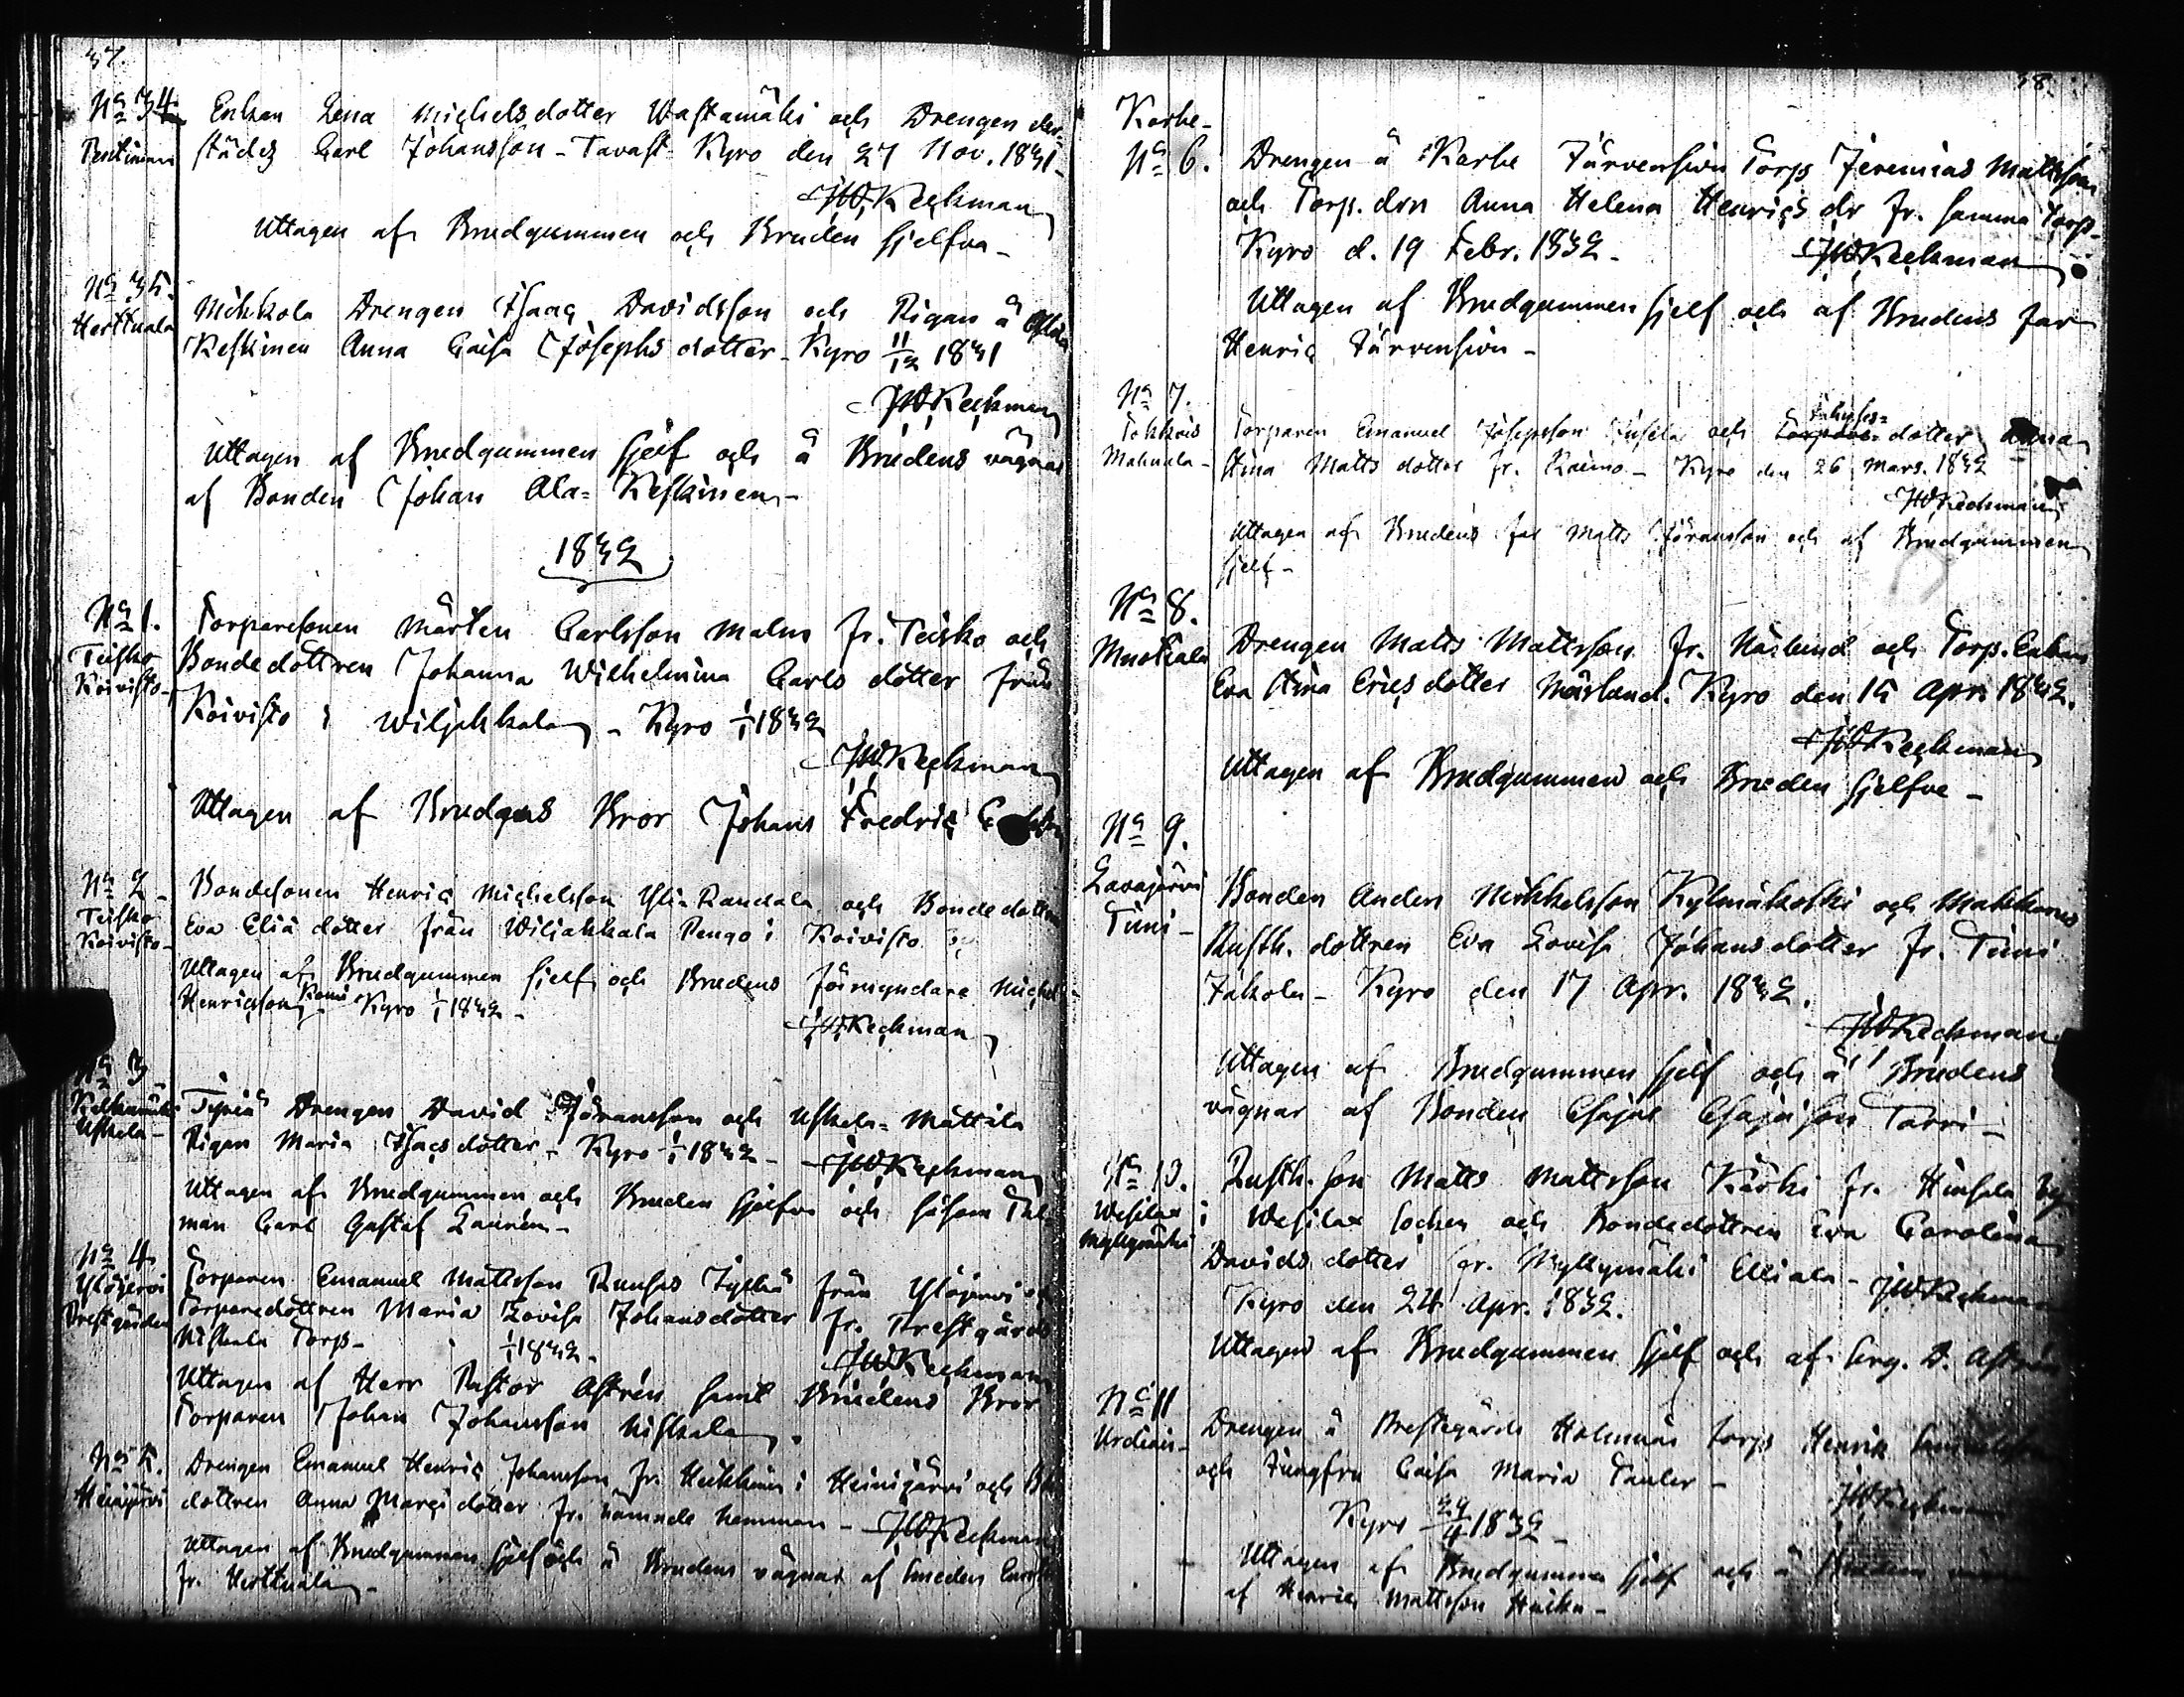 37.
No 34. Enkan Lena Michelsdotter Wastamäki och Drengen der-
Pentinmaa städes Carl Johansson - Tavast Kyro den 27 Nov. 1831 -
JWKeckman
Uttagen af Brudgummen och Bruden sjelfva -
No 35.
Herttuala Mikkola Drengen Isaac Davidsson och Pigan å
Keskinen Anna Caisa Josephs dotter - Kyro 11/12 1831
JWKeckman
Uttagen af Brudgummen sjelf och å Brudens vägnar
af Bonden Johan Ala-Keskinen -
1832
No 1. Torparesonen Mårten Carlsson Malm fr. Teisko och
Teisko Bondedottren Johanna Wilhelmina Carls dotter från
Koivisto - Koivisto i Wiljakkala - Kyro 1/1 1832
JWKeckman
Uttagen af Brudgus Bror Johan Fredric
No 2 - Bondesonen Henric Michelsson Yli-Raudala och Bondedottren
Teisko Eva Eliæ dotter från Wiljakkala Pengo i Koivisto
Koivisto - Uttagen af Brudgummen sjelf och Brudens förmyndare Michel
Henricsson Komi Kyro 1/1 1832 -
JWKeckman
No 3
Kelkamäki Drengen David Göransson och Uskela-Mattila
Uskela - Pigan Maria Isacsdotter - Kyro 1/1 1832 - JWKeckman
Uttagen af Brudgummen och Bruden sjelfva och såsom Tals-
man Carl Gustaf Laurén -
No 4. Torparen Emanuel Mattsson från Ylöjervi och
Ylöjervi Torparedottren Maria Lovisa Johansdotter fr. Prestgårds
Prestgården Niskala Torp - 1/1 1832 -
JWKeckman
Uttagen af Herr Pastor Astrén samt Brudens Bror
Torparen Johan Johansson Niskala.
No 5. Drengen Emanuel Henric Johansson fr. Heikkinen i Heinijärvi och
Heinijärvi dottren Anna Marci dotter fr. nämnde hemman - JWKeckman
Uttagen af Brudgummen sjelf och å Brudens vägnar af Smeden
fr. Herttuala -
38.
Karhe -
No 6. Drengen å Karhe Järvensivu Torp Jeremias Mattsson
och Torp. drn Anna Helena Henrics dr fr. samma Torp -
Kyro d. 19 Febr. 1832 - JWKeckman
Uttagen af Brudgummen sjelf och af Brudens far
Henric Järvensivu -
No 7.
Torparen Emanuel Josepsson och dotter Anna
Mahnala - Stina Matts dotter fr. Raimo - Kyro den 26 Mars. 1832
JWKeckman
Uttagen af Brudens far Matts Göransson och af Brudgummen
sjelf -
No 8.
Muotiala Drengen Matts Mattsson fr. Näslund och Torp. Enkan
Eva Stina Ericsdotter Näslund. Kyro den 15 Apr. 1832.
JWKeckman
Uttagen af Brudgummen och Bruden sjelfve -
No 9.
Lavajärvi Bonden Anders Mikkelsson Kylmäkoski och
Timi - Rusth. dottren Eva Lovisa Johansdotter fr. Timi
Jakola - Kyro den 17 Apr. 1832.
JWKeckman
Uttagen af Brudgummen sjelf och å Brudens
vägnar af Bonden Esajas Esajæson Tarri -
No 10. Rusth. son Matts Mattsson Kärki fr. Hinsala by
Wesilax i Wesilax Socken och Bondedottren Eva Carolina
Myllymäki Davids dotter fr. Myllymäki Elliala - JWKeckman
Kyro den 24 Apr. 1832.
Uttagen af Brudgummen sjelf och af Serg. D. Astrén
No 11
Drengen å Prestegårds Holmnäs torp Henrik
och Jungfru Caisa Maria Tauler -
JWKeckman
Kyro 29/4 1832 -
Uttagen af Brudgummen sjelf och å Brudens
af Henrics Mattsson